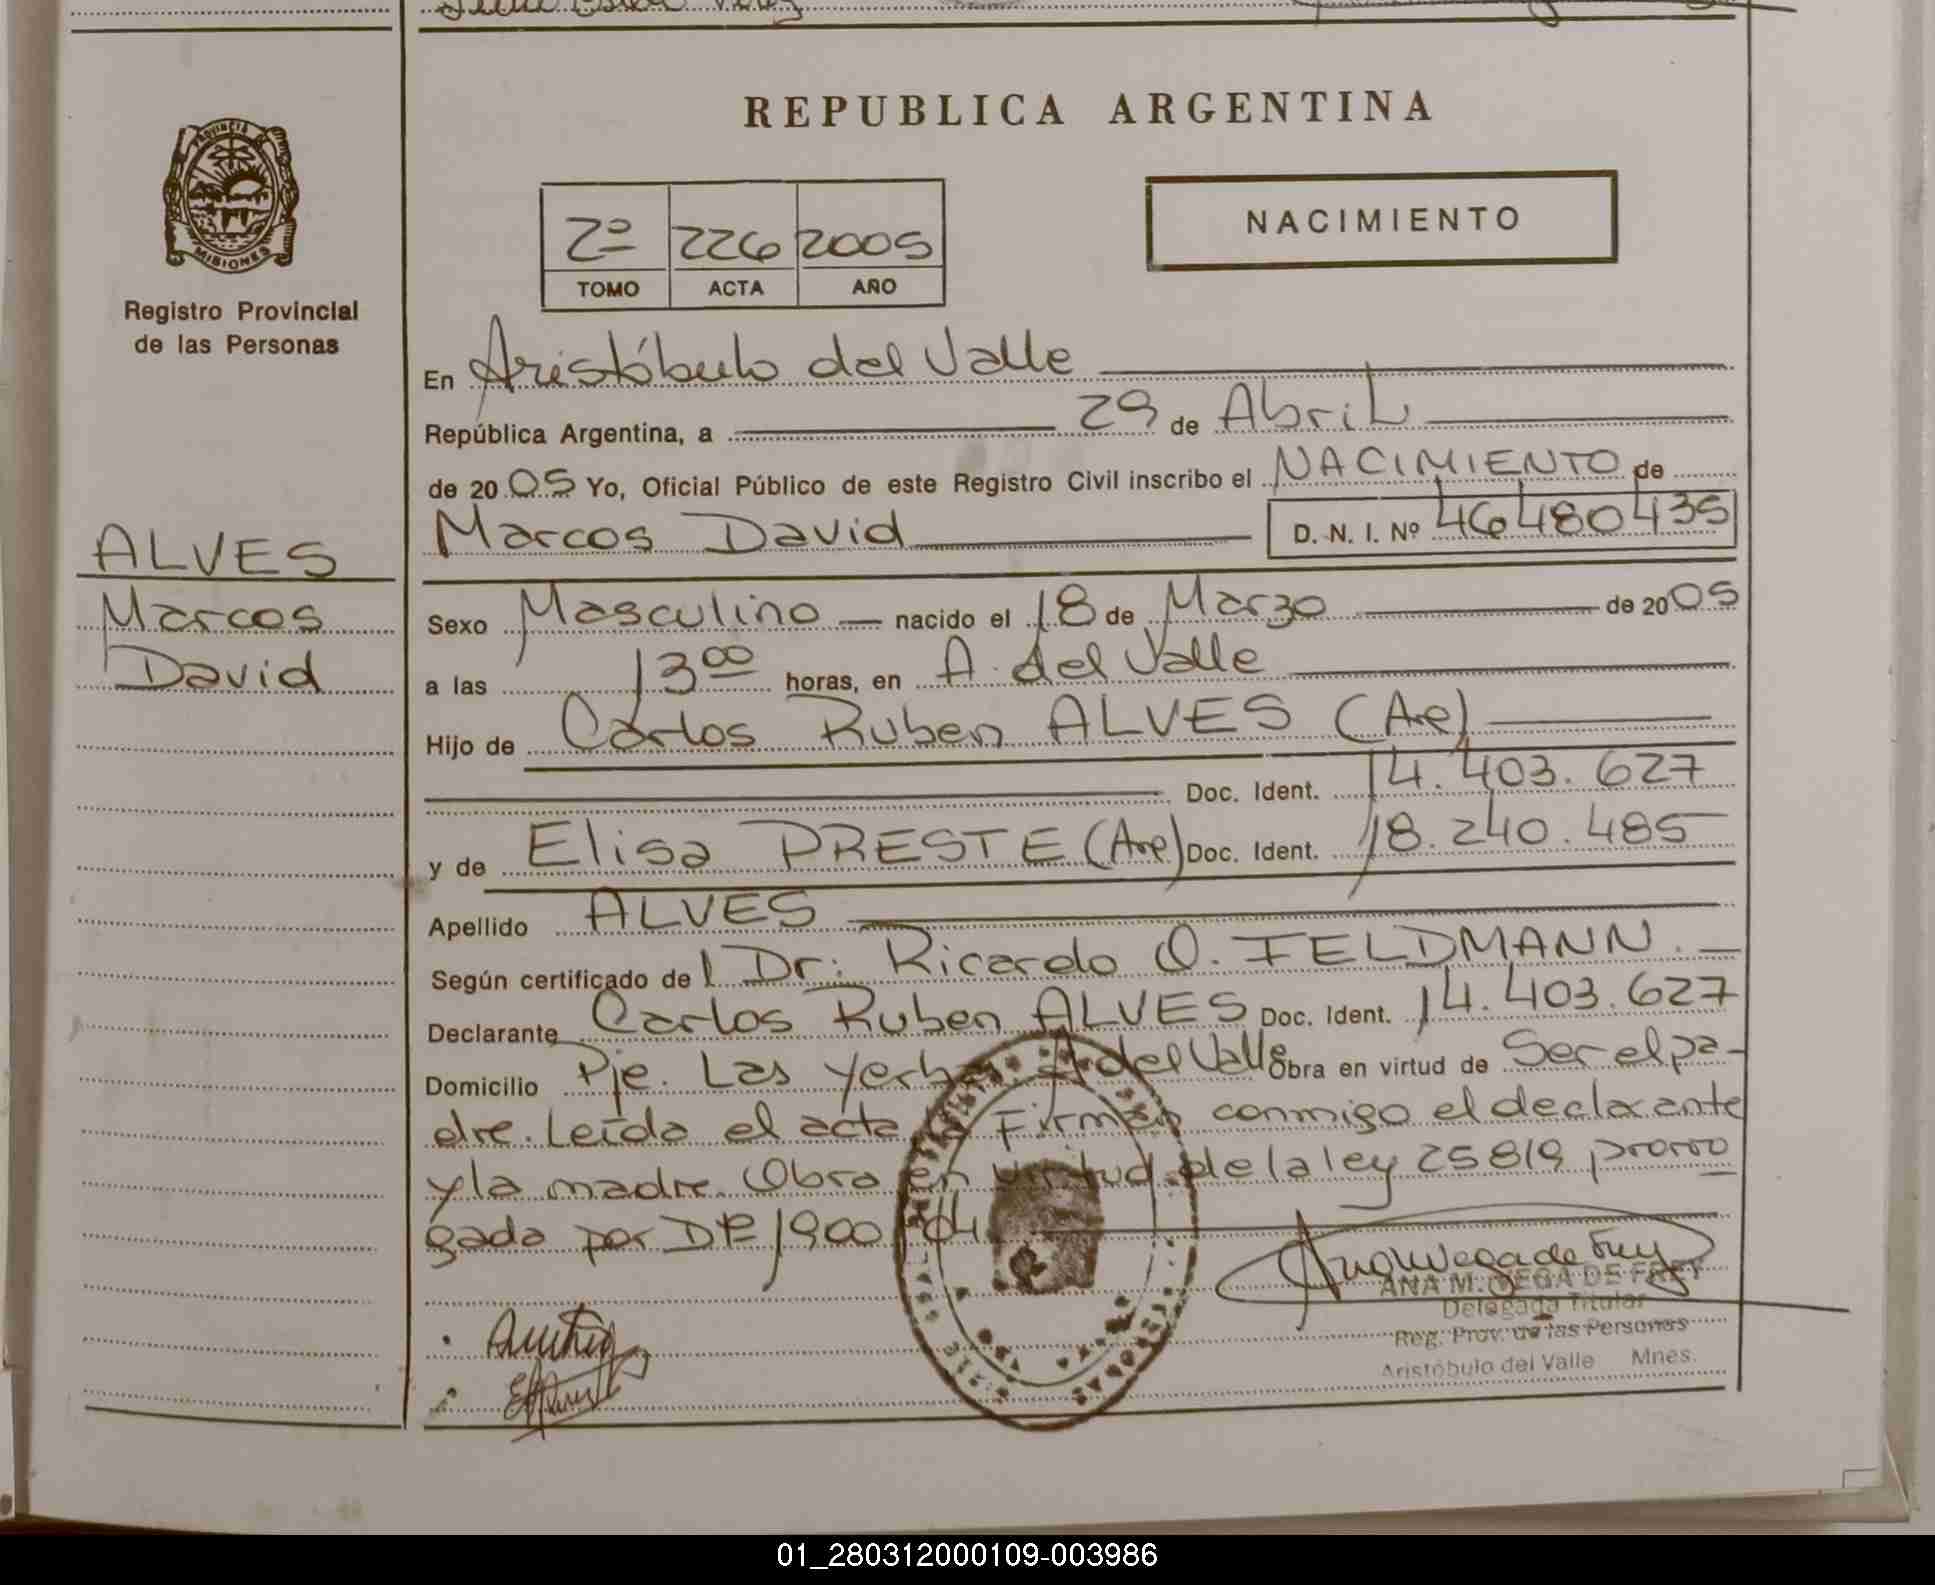 REPUBLICA ARGENTINA
PROVINCIA
MISIONES
Registro Provincial
de las Personas
ALVES
Marcos
David
2º 226 2005
TOMO ACTA AÑO
NACIMIENTO
En Aristóbulo del Valle
República Argentina, a 29 de Abril
de 2005 Yo, Oficial Público de este Registro Civil inscribo el NACIMIENTO de
Marcos David D. N. I. Nº 46480435
Sexo Masculino nacido el 18 de Marzo de 2005
a las 13 00 horas, en A. del Valle
Hijo de Carlos Ruben ALVES (Arg)
Doc. Ident. 14.403.627
y de Elisa PRESTE (Arg) Doc. Ident. 18.240.485
Apellido ALVES
Según certificado de l Dr: Ricardo O. FELDMANN.
Declarante Carlos Ruben ALVES Doc. Ident. 14.403.627
Domicilio Pje. Las Yerbas A del Valle Obra en virtud de Ser el pa-
dre. Leída el acta la Firman conmigo el declarante
y la madre. Obra en virtud de la ley 25819 prorro
gada por DP 1900/04
ANA M. VEGA DE FREY
Delegada Titular
Reg. Prov. de las Personas
Aristóbulo del Valle Mnes.
01_280312000109-003986